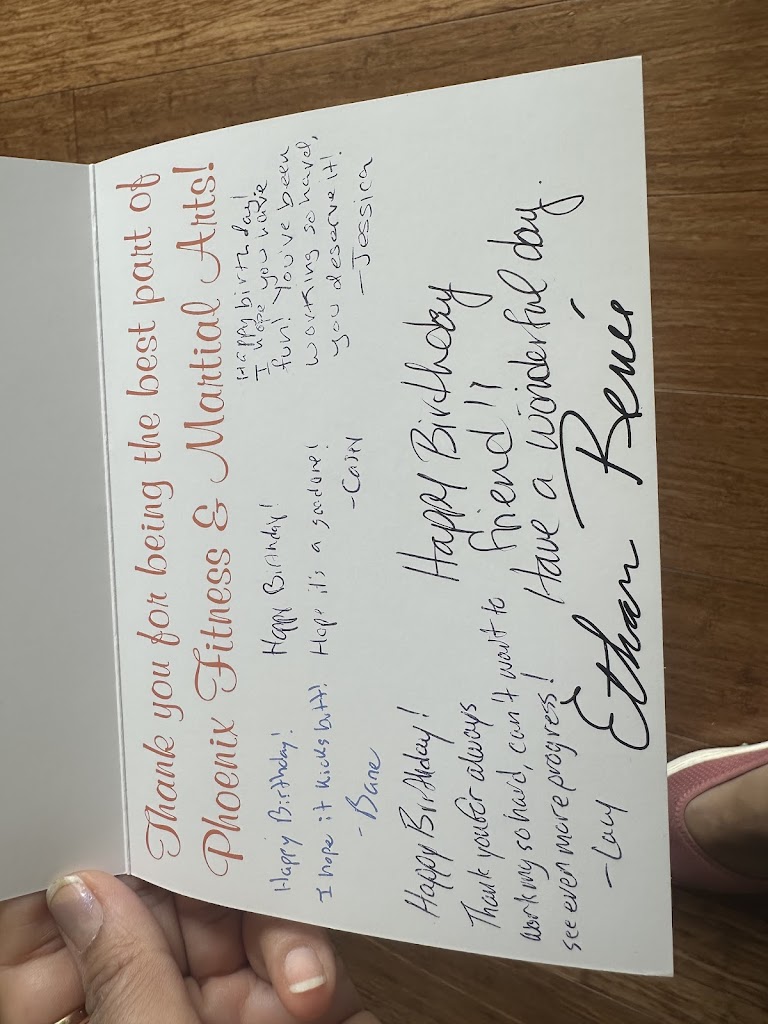 Thank you for being the best part of
Phoenix Fitness & Martial Arts!
Happy Birthday!
I hope it kicks butt!
- Bane
Happy Birthday!
Hope it's a good one!
- Casey
Happy birthday!
I hope you have
fun! You've been
working so hard,
you deserve it!
- Jessica
Happy Birthday!
Thank you for always
working so hard, can't wait to
see even more progress!
- Lacy
Happy Birthday
friend!!
Have a wonderful day.
Ethan René